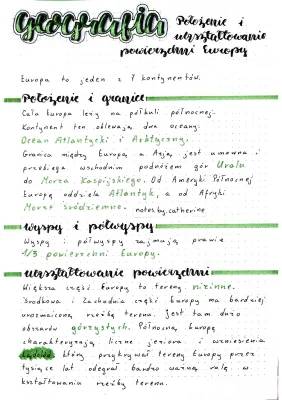 geografia
Położenie i
ukształtowanie
powierzchni Europy
Europa to jeden z 7 kontynentów.
Położenie i granice
Cała Europa leży na półkuli północnej.
Kontynent ten oblewają dwa oceany.
Ocean Atlantycki i Arktyczny.
Granica między Europą a Azją jest umowna i
przebiega wschodnim podnóżem gór Uralu
do Morza Kaspijskiego. Od Ameryki Północnej
Europę oddziela Atlantyk, a od Afryki
Morze śródziemne. notes.by.catherine
wyspy i półwyspy
Wyspy i półwyspy zajmują prawie
1/3 powierzchni Europy.
ukształtowanie powierzchni
Większa część Europy to tereny nizinne.
Środkowa i Zachodnia część Europy ma bardziej
urozmaiconą rzeźbę terenu. Jest tam dużo
obszarów górzystych. Północną Europę
charakteryzują liczne jeziora i wzniesienia
Lądolód, który przykrywał tereny Europy przez
tysiące lat odegrał bardzo ważną rolę w
kształtowaniu rzeźby terenu.